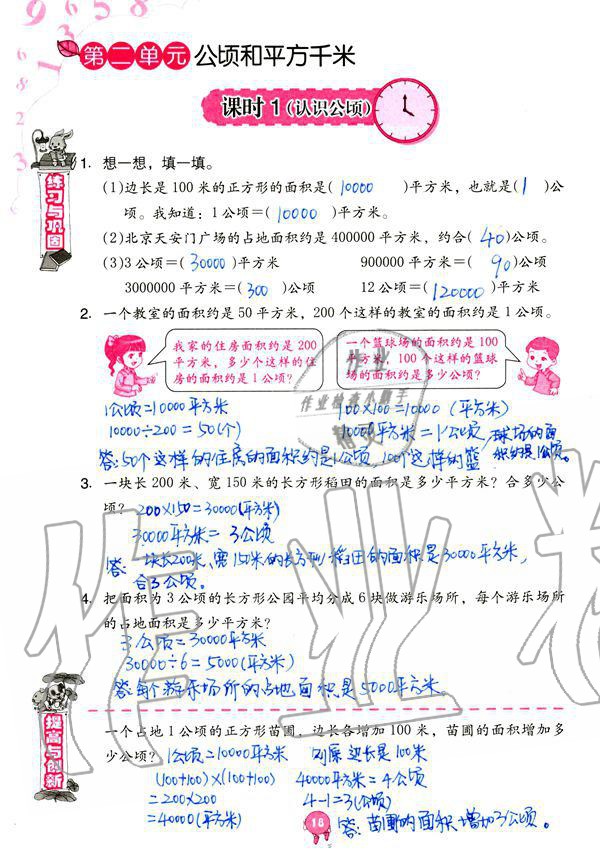 第二单元 公顷和平方千米
课时1(认识公顷)
练习与巩固
1. 想一想，填一填。
(1)边长是100米的正方形的面积是( 10000 )平方米，也就是( 1 )公
顷。我知道：1公顷＝( 10000 )平方米。
(2)北京天安门广场的占地面积约是400000平方米，约合( 40 )公顷。
(3)3公顷＝( 30000 )平方米 900000平方米＝( 90 )公顷
3000000平方米＝( 300 )公顷 12公顷＝( 120000 )平方米
2. 一个教室的面积约是50平方米，200个这样的教室的面积约是1公顷。
我家的住房面积约是200
平方米，多少个这样的住
房的面积约是1公顷？
一个篮球场的面积约是100
平方米，100个这样的篮球
场的面积约是多少公顷？
1公顷=10000平方米
10000÷200=50(个)
答:50个这样的住房的面积约是1公顷,
100×100=10000(平方米)
10000平方米=1公顷
100个这样的篮球场的面
积约是1公顷。
3. 一块长200米、宽150米的长方形稻田的面积是多少平方米？合多少公
顷？ 200×150=30000(平方米)
30000平方米=3公顷
答:一块长200米、宽150米的长方形稻田的面积是30000平方米,
合3公顷。
4. 把面积为3公顷的长方形公园平均分成6块做游乐场所，每个游乐场所
的占地面积是多少平方米？
3公顷=30000平方米
30000÷6=5000(平方米)
答:每个游乐场所的占地面积是5000平方米。
提高与创新
一个占地1公顷的正方形苗圃，边长各增加100米，苗圃的面积增加多
少公顷？ 1公顷=10000平方米 则原边长是100米
(100+100)×(100+100) 40000平方米=4公顷
=200×200 4-1=3(公顷)
=40000(平方米) 答:苗圃的面积增加3公顷。
18
作业
作业检查小助手
作业